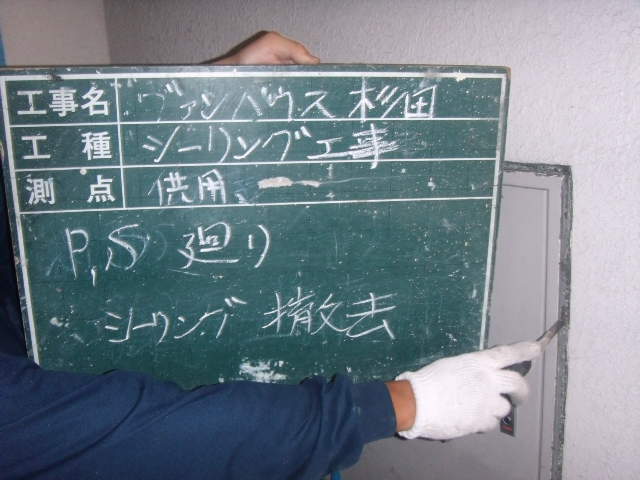 工事名 ヴァンハウス杉田
工種 シーリング工事
測点 供用、
P,S 廻り
シーリング 撤去